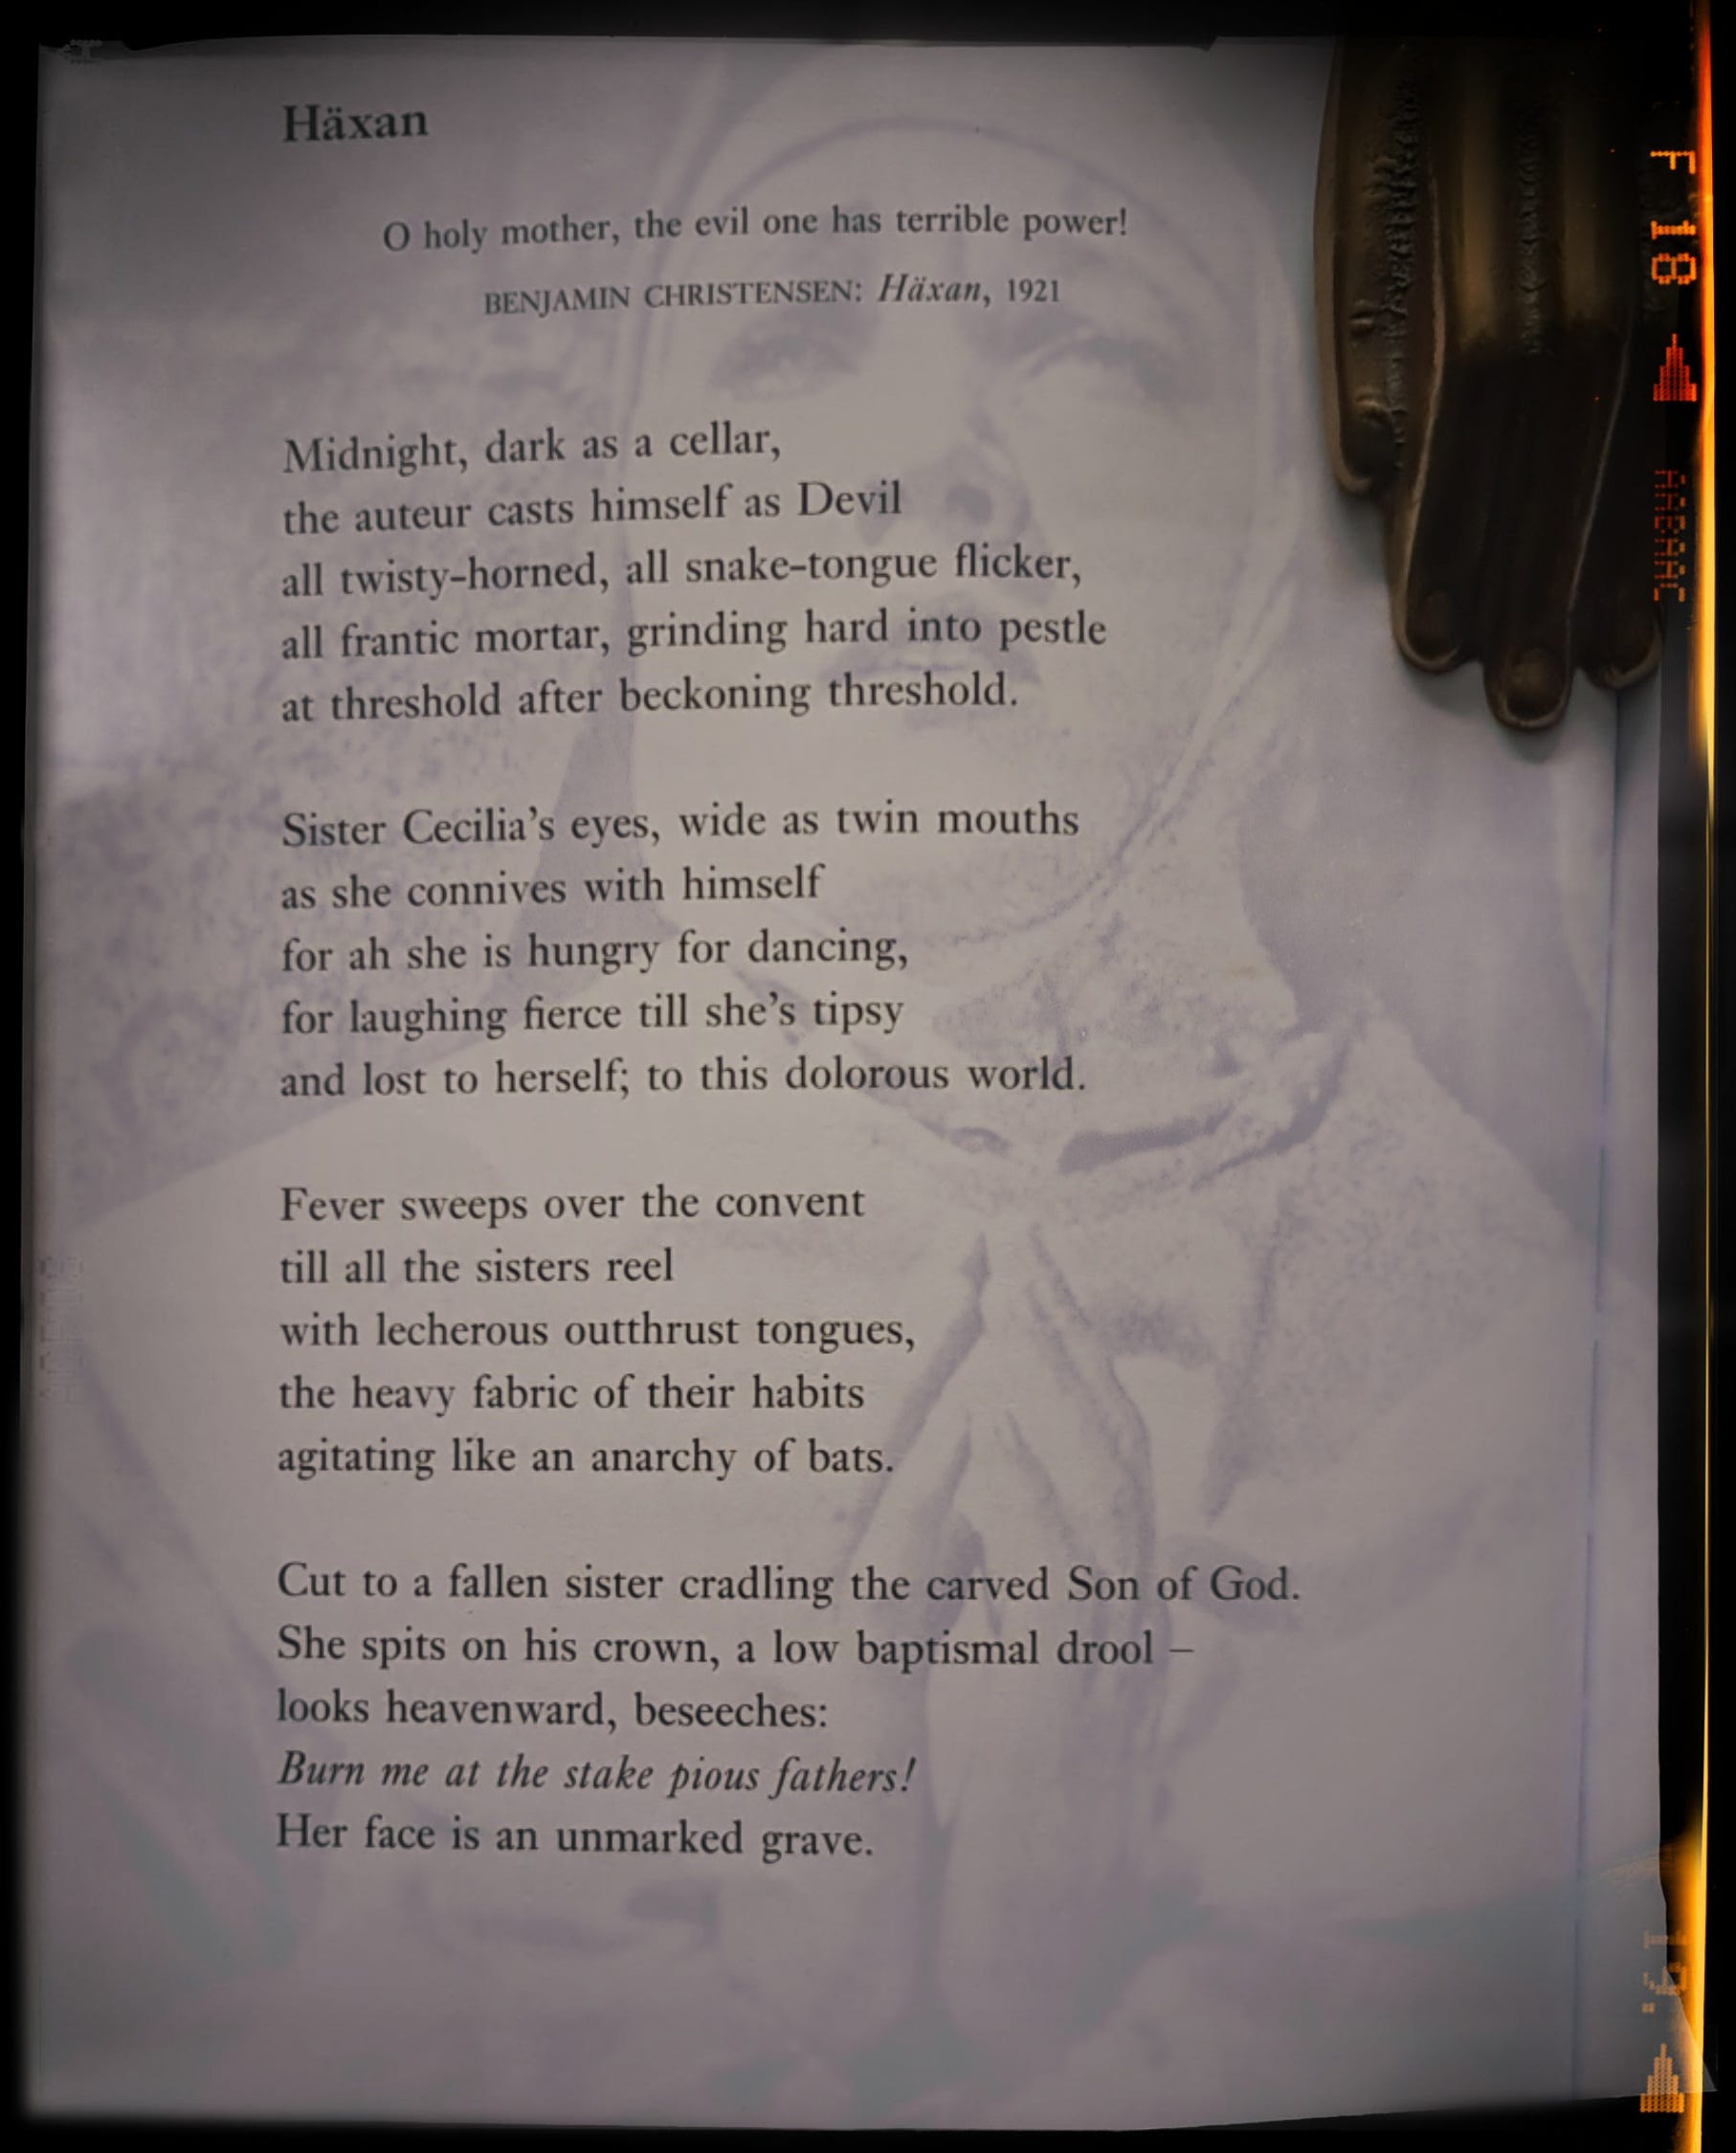 Häxan
O holy mother, the evil one has terrible power!
BENJAMIN CHRISTENSEN: Häxan, 1921
Midnight, dark as a cellar,
the auteur casts himself as Devil
all twisty-horned, all snake-tongue flicker,
all frantic mortar, grinding hard into pestle
at threshold after beckoning threshold.
Sister Cecilia's eyes, wide as twin mouths
as she connives with himself
for ah she is hungry for dancing,
for laughing fierce till she's tipsy
and lost to herself; to this dolorous world.
Fever sweeps over the convent
till all the sisters reel
with lecherous outthrust tongues,
the heavy fabric of their habits
agitating like an anarchy of bats.
Cut to a fallen sister cradling the carved Son of God.
She spits on his crown, a low baptismal drool –
looks heavenward, beseeches:
Burn me at the stake pious fathers!
Her face is an unmarked grave.
F 18